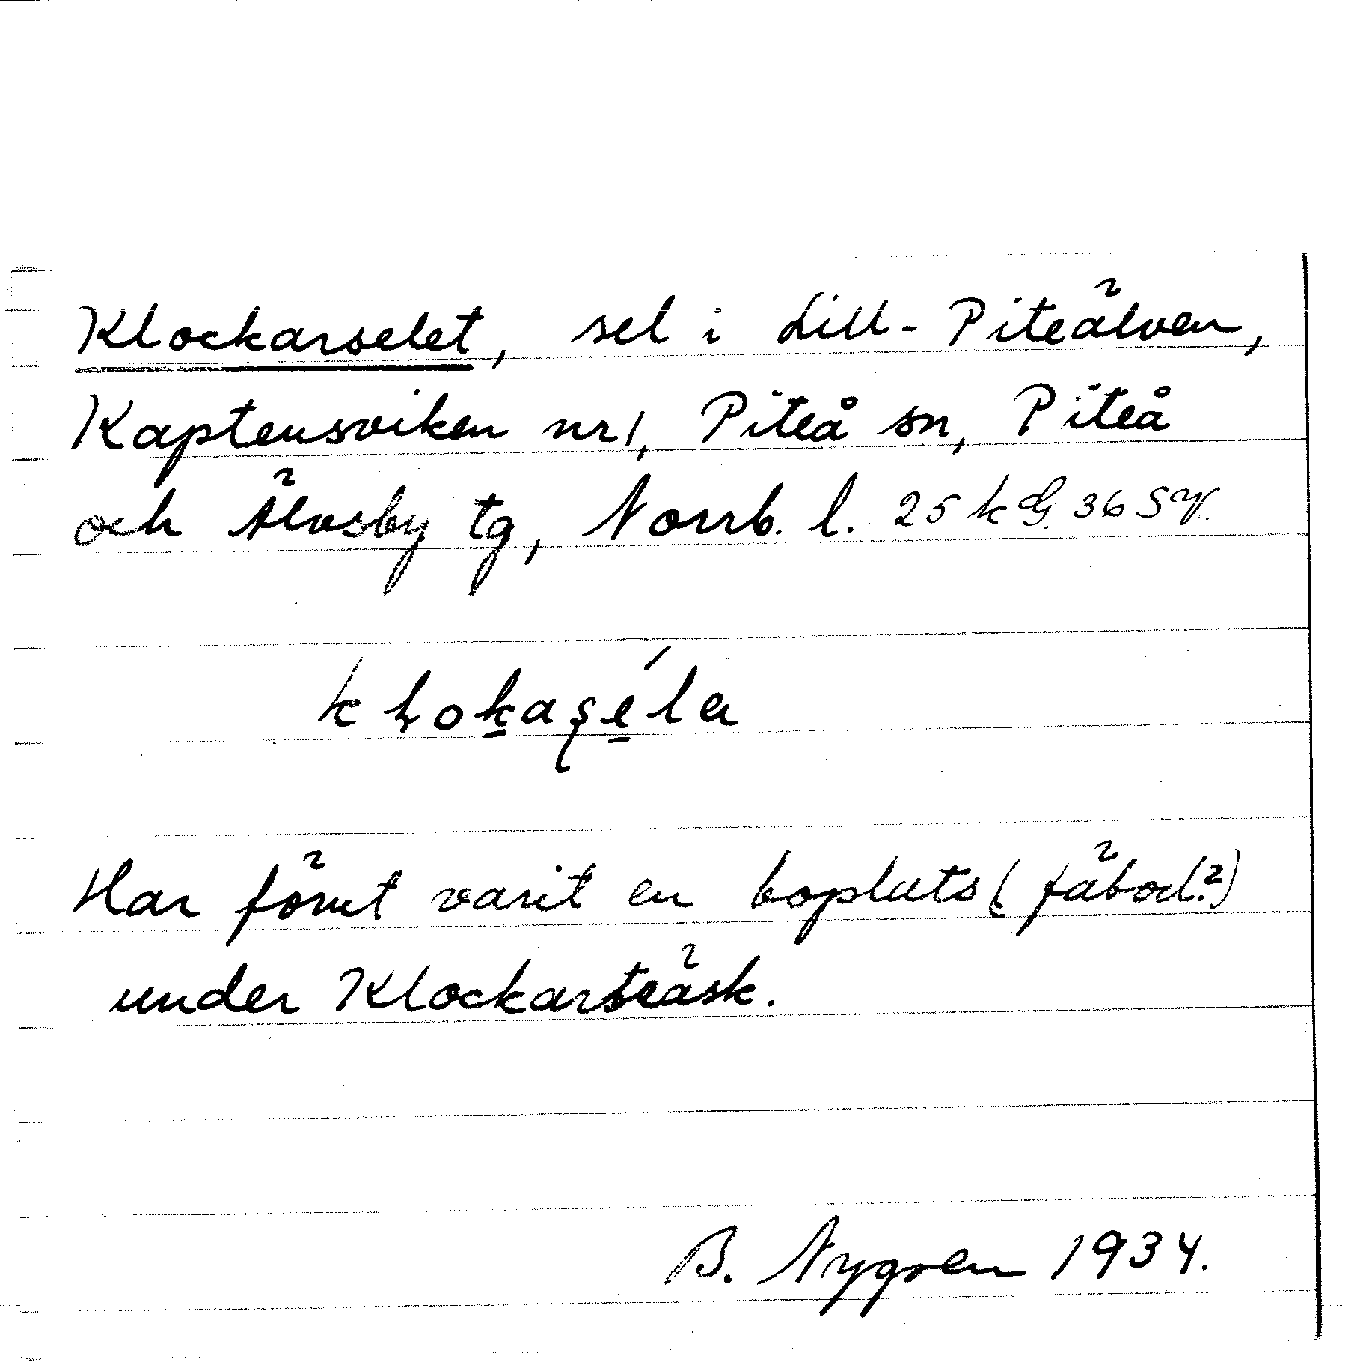 Klockarselet, sel i Lill-Piteälven,
Kaptensviken nr 1, Piteå sn, Piteå
och Älvsby tg, Norrb. l. 25 k
Har förut varit en boplats (fäbod?)
under Klockarträsk.
B. Nygren 1934.